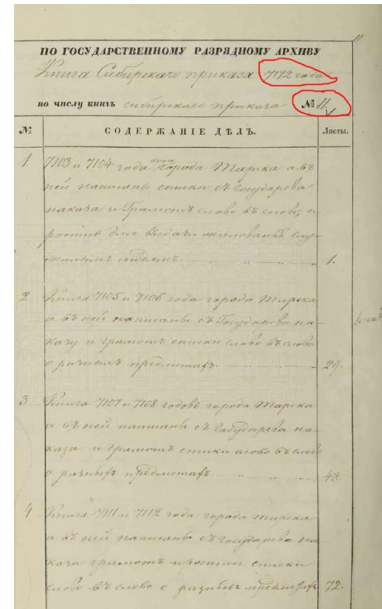 ПО ГОСУДАРСТВЕННОМУ РАЗРЯДНОМУ АРХИВУ
Книга Сибирскаго приказа 7112 года
по числу книгъ сибирскаго приказа № 11
№ СОДЕРЖАНІЕ ДѢЛЪ. Листы.
1 7103 и 7104 года книга города Тарска а въ
ней написаны списки съ Государева
наказа и Грамотъ слово въ слово и
1.
2 Книга 7105 и 7106 года города Тарска
а въ ней написаны съ Государева на-
казу и грамотъ списки слово въ слово
о разныхъ предметахъ 29.
3 Книга 7107 и 7108 годовъ города Тарска
а въ ней написаны съ Государева на-
каза и грамотъ списки слово въ слово
о разныхъ предметахъ 48.
4 Книга 7111 и 7112 года города Тарска
а въ ней написаны съ Государева на-
каза грамотъ и росписи списки
слово въ слово о разныхъ предметахъ 72.